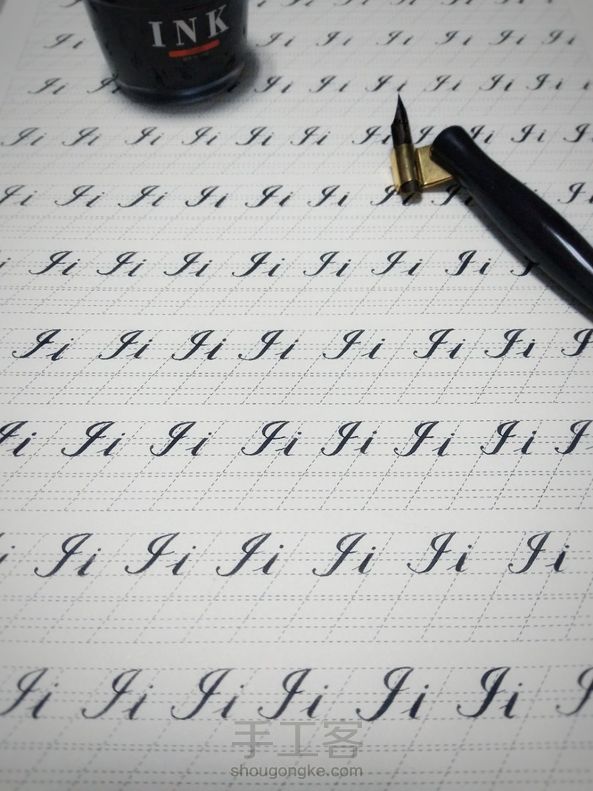 INK
Ii Ii Ii Ii Ii Ii Ii Ii
Ii Ii Ii Ii Ii Ii Ii Ii Ii
Ii Ii Ii Ii Ii Ii Ii Ii Ii Ii Ii
Ii Ii Ii Ii Ii Ii Ii Ii
Ii Ii Ii Ii Ii Ii Ii
Ii Ii Ii Ii Ii Ii Ii I
Ii Ii Ii Ii Ii Ii Ii I
i Ii Ii Ii Ii Ii Ii
Ii Ii Ii Ii Ii Ii I
手工客
shougongke.com